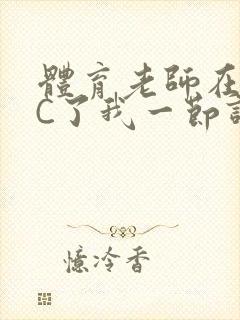 體育老師在
C了我一節
憶冷香